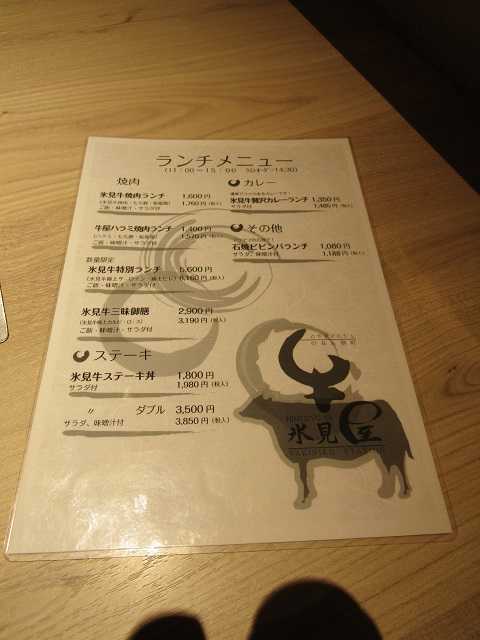 ランチメニュー
(11:00~15:00 ラストオーダー14:30)
焼肉
氷見牛焼肉ランチ 1,600円
1,760円(税込)
ご飯・味噌汁・サラダ付
牛屋ハラミ焼肉ランチ 1,400円
1,570円(税込)
ご飯・味噌汁・サラダ付
数量限定
氷見牛特別ランチ 5,600円
6,160円(税込)
ご飯・味噌汁・サラダ付
氷見牛三昧御膳 2,900円
3,190円(税込)
ご飯・味噌汁・サラダ付
ステーキ
氷見牛ステーキ丼 1,800円
サラダ付 1,980円(税込)
〃 ダブル 3,500円
サラダ、味噌汁付 3,850円(税込)
カレー
氷見牛贅沢カレーランチ 1,350円
サラダ付 1,485円(税込)
その他
石焼ビビンバランチ 1,080円
サラダ、味噌汁付 1,188円(税込)
氷見